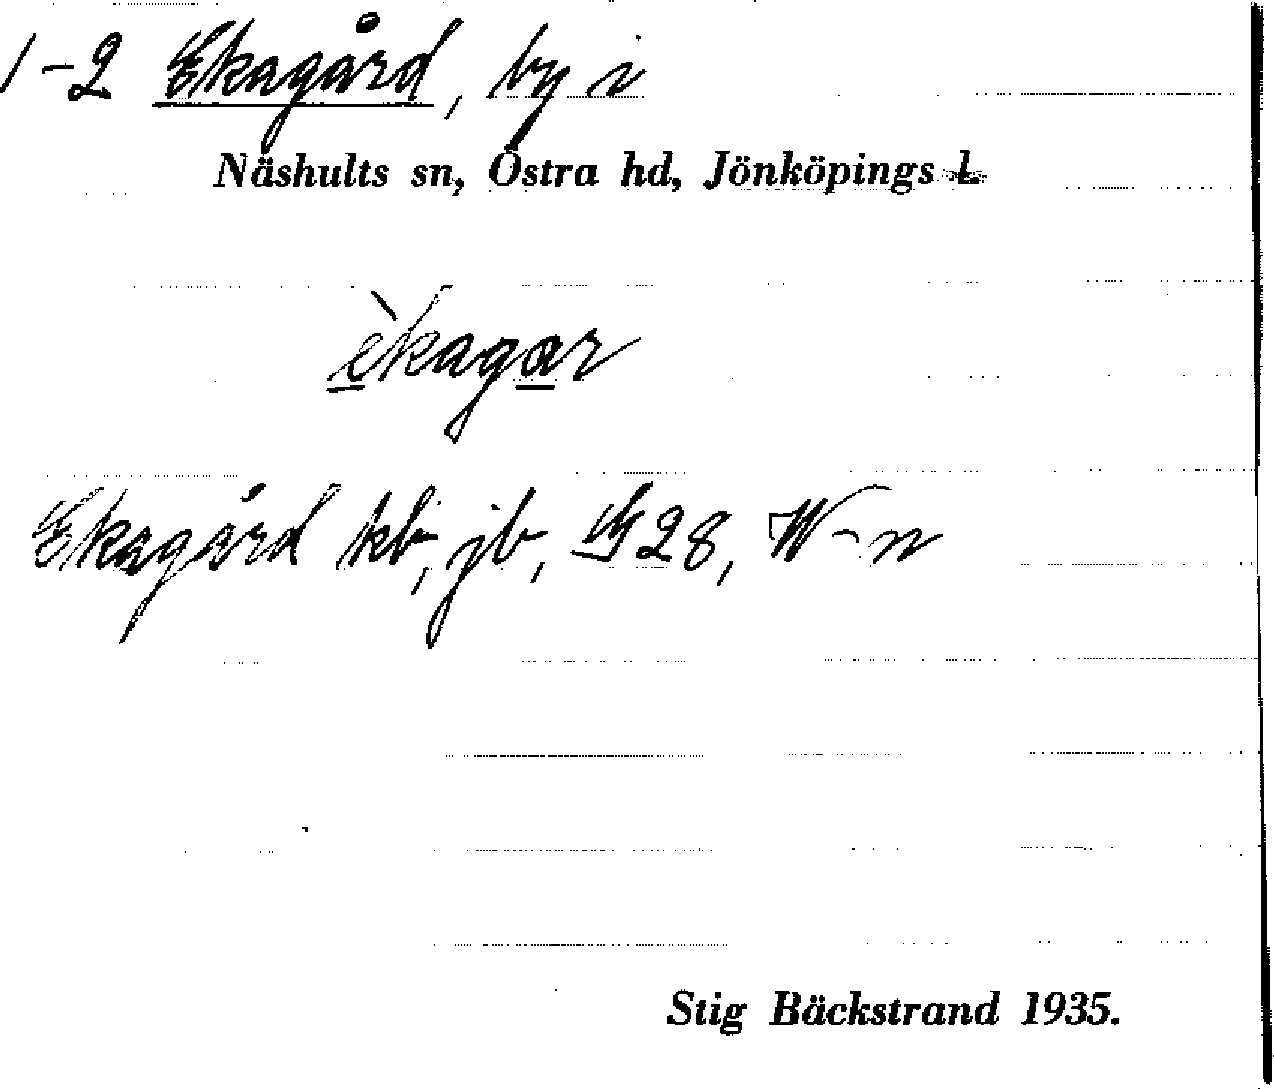 1-2 Ekagård, by i
Näshults sn, Östra hd, Jönköpings l.
èkagar
Ekagård kb, jb, 28, W-n
Stig Bäckstrand 1935.